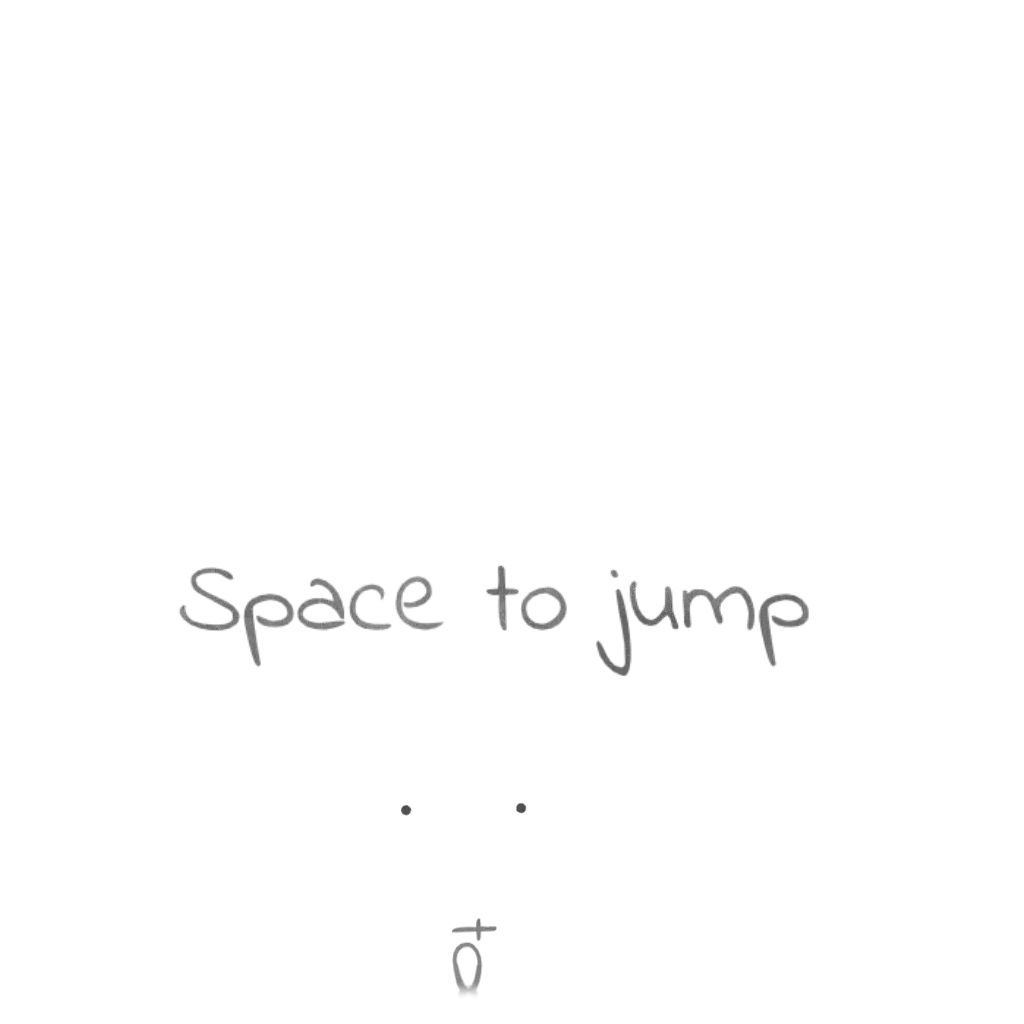 Space to jump